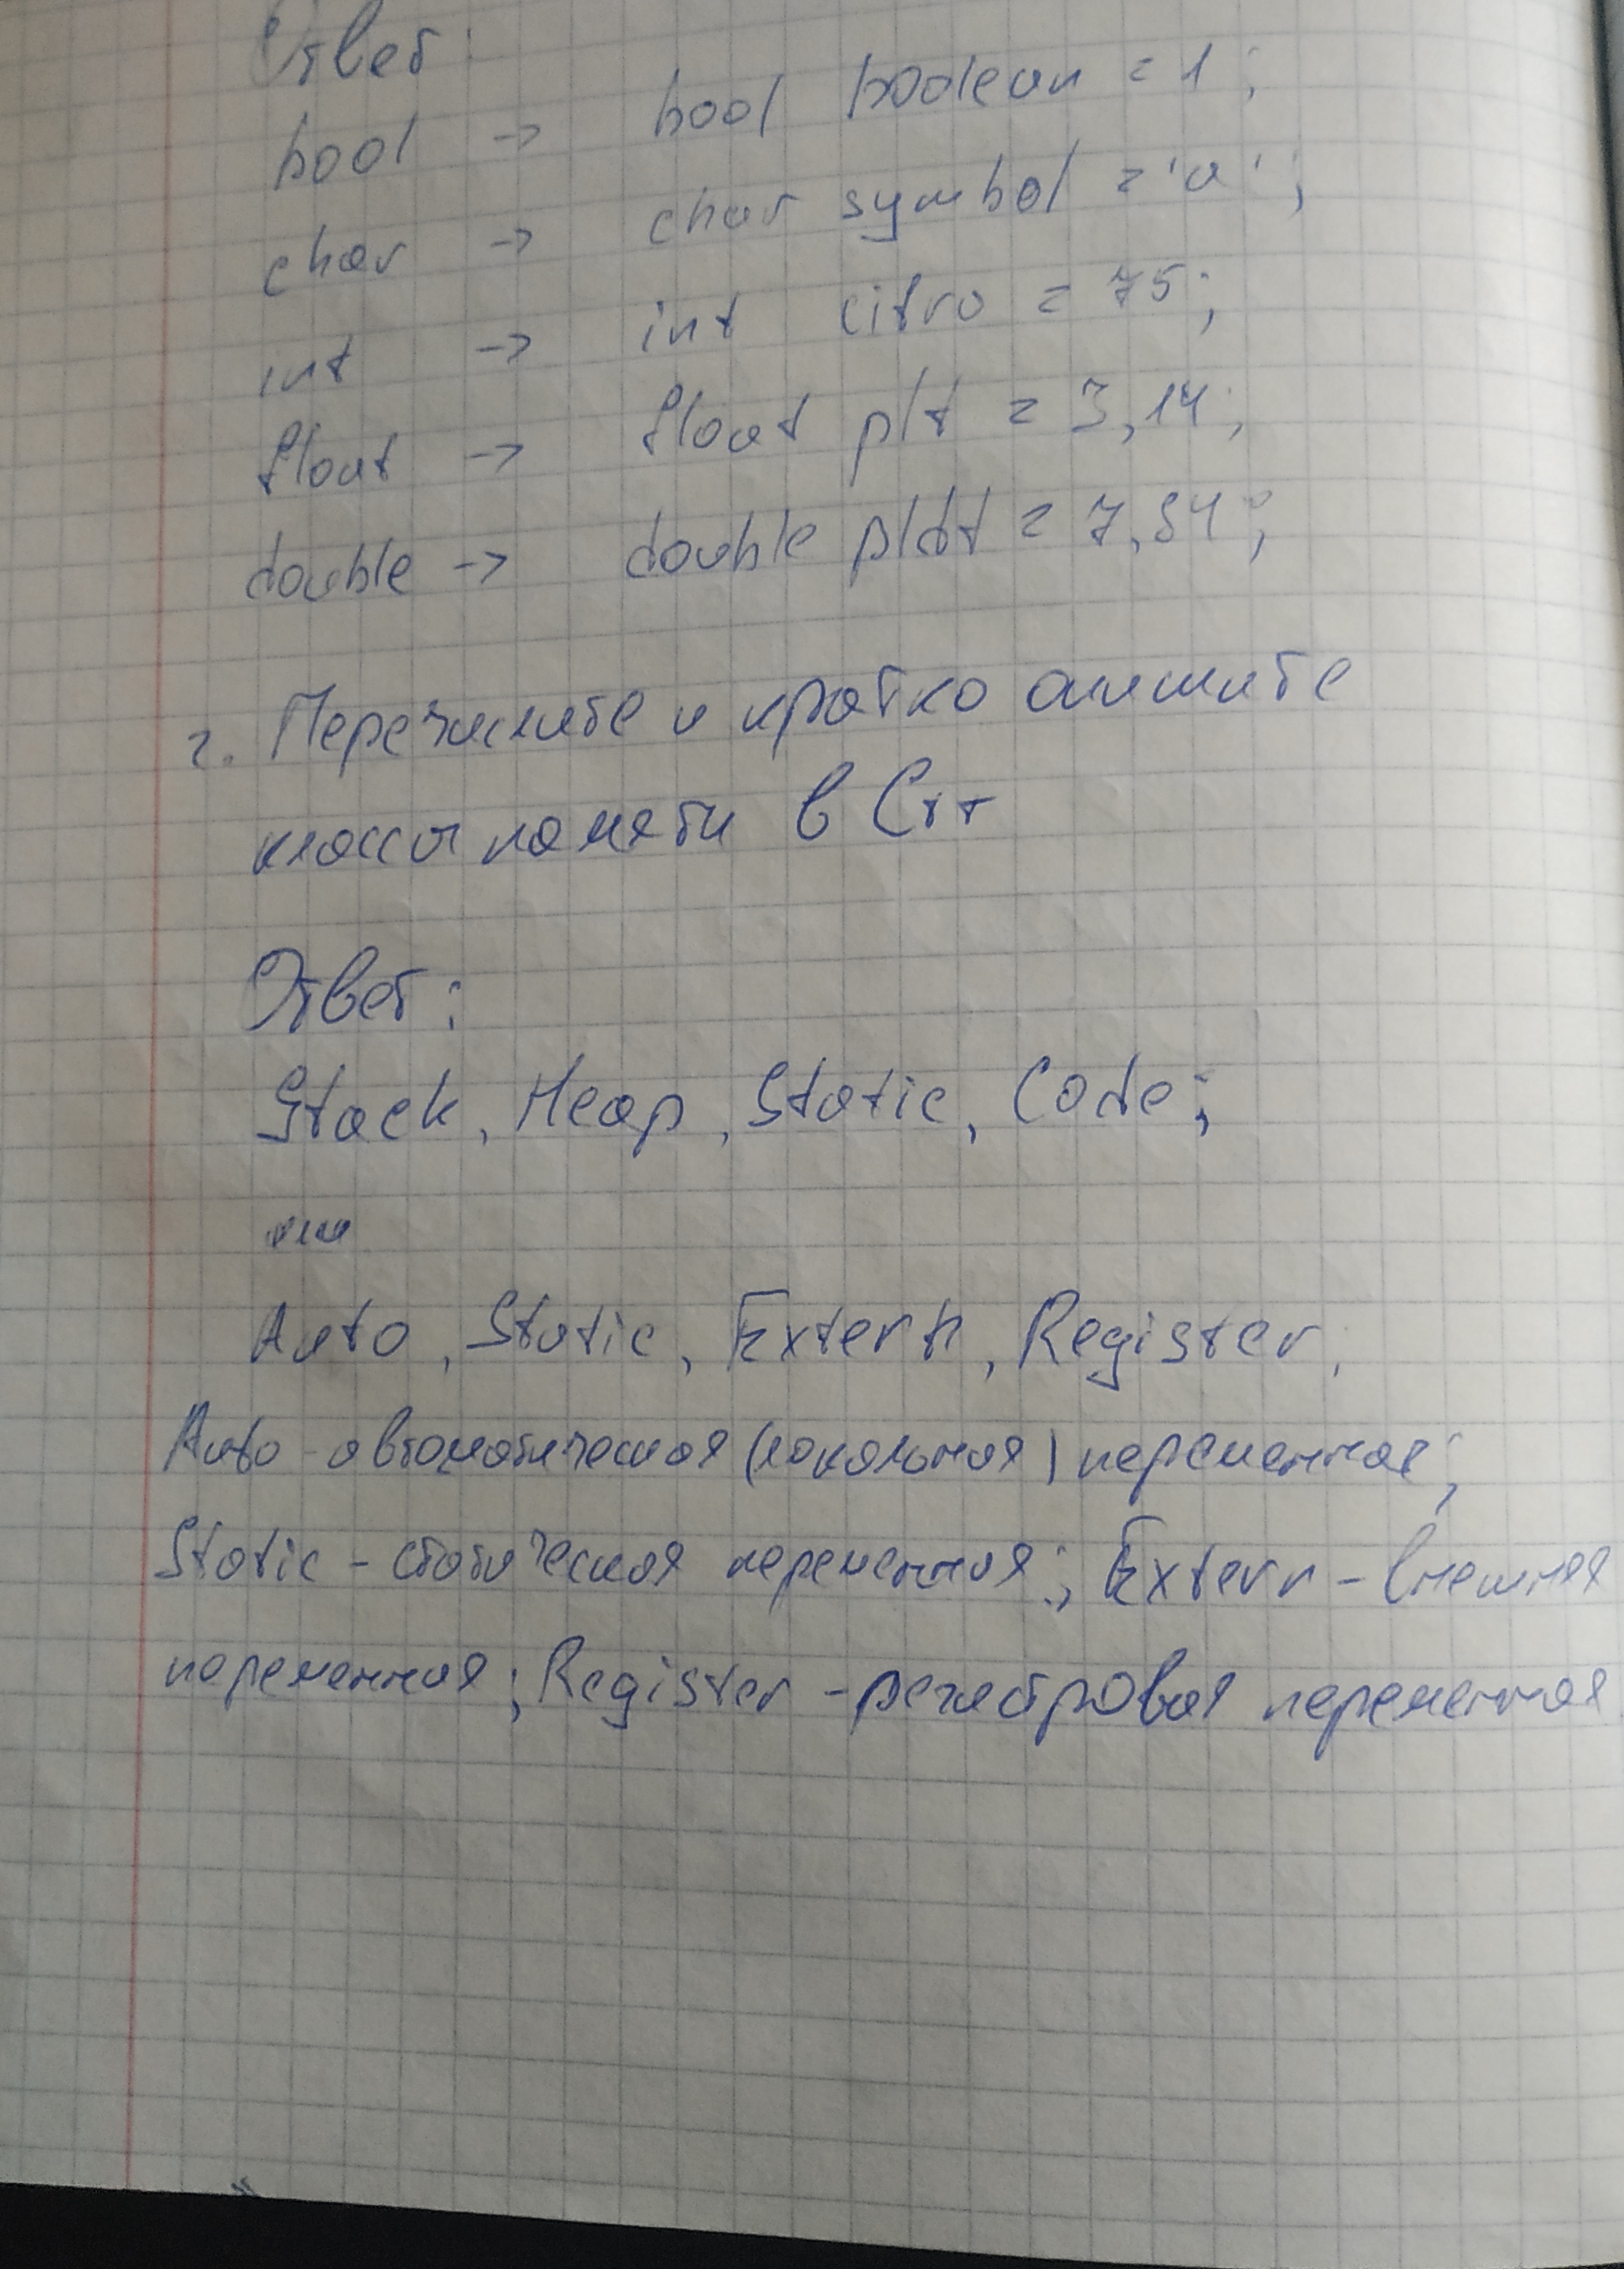 Ответ:
bool → bool boolean = 1;
char → char symbol = 'a';
int → int citra = 75;
float → float plt = 3,14;
double → double pldt = 7,54;
2. Перечислите и кратко опишите
классы памяти в C++
Ответ:
Stack, Heap, Static, Code;
или
Auto, Static, Extern, Register,
Auto - автоматическая (локальная) переменная;
Static - статическая переменная; Extern - внешняя
переменная; Register - регистровая переменная